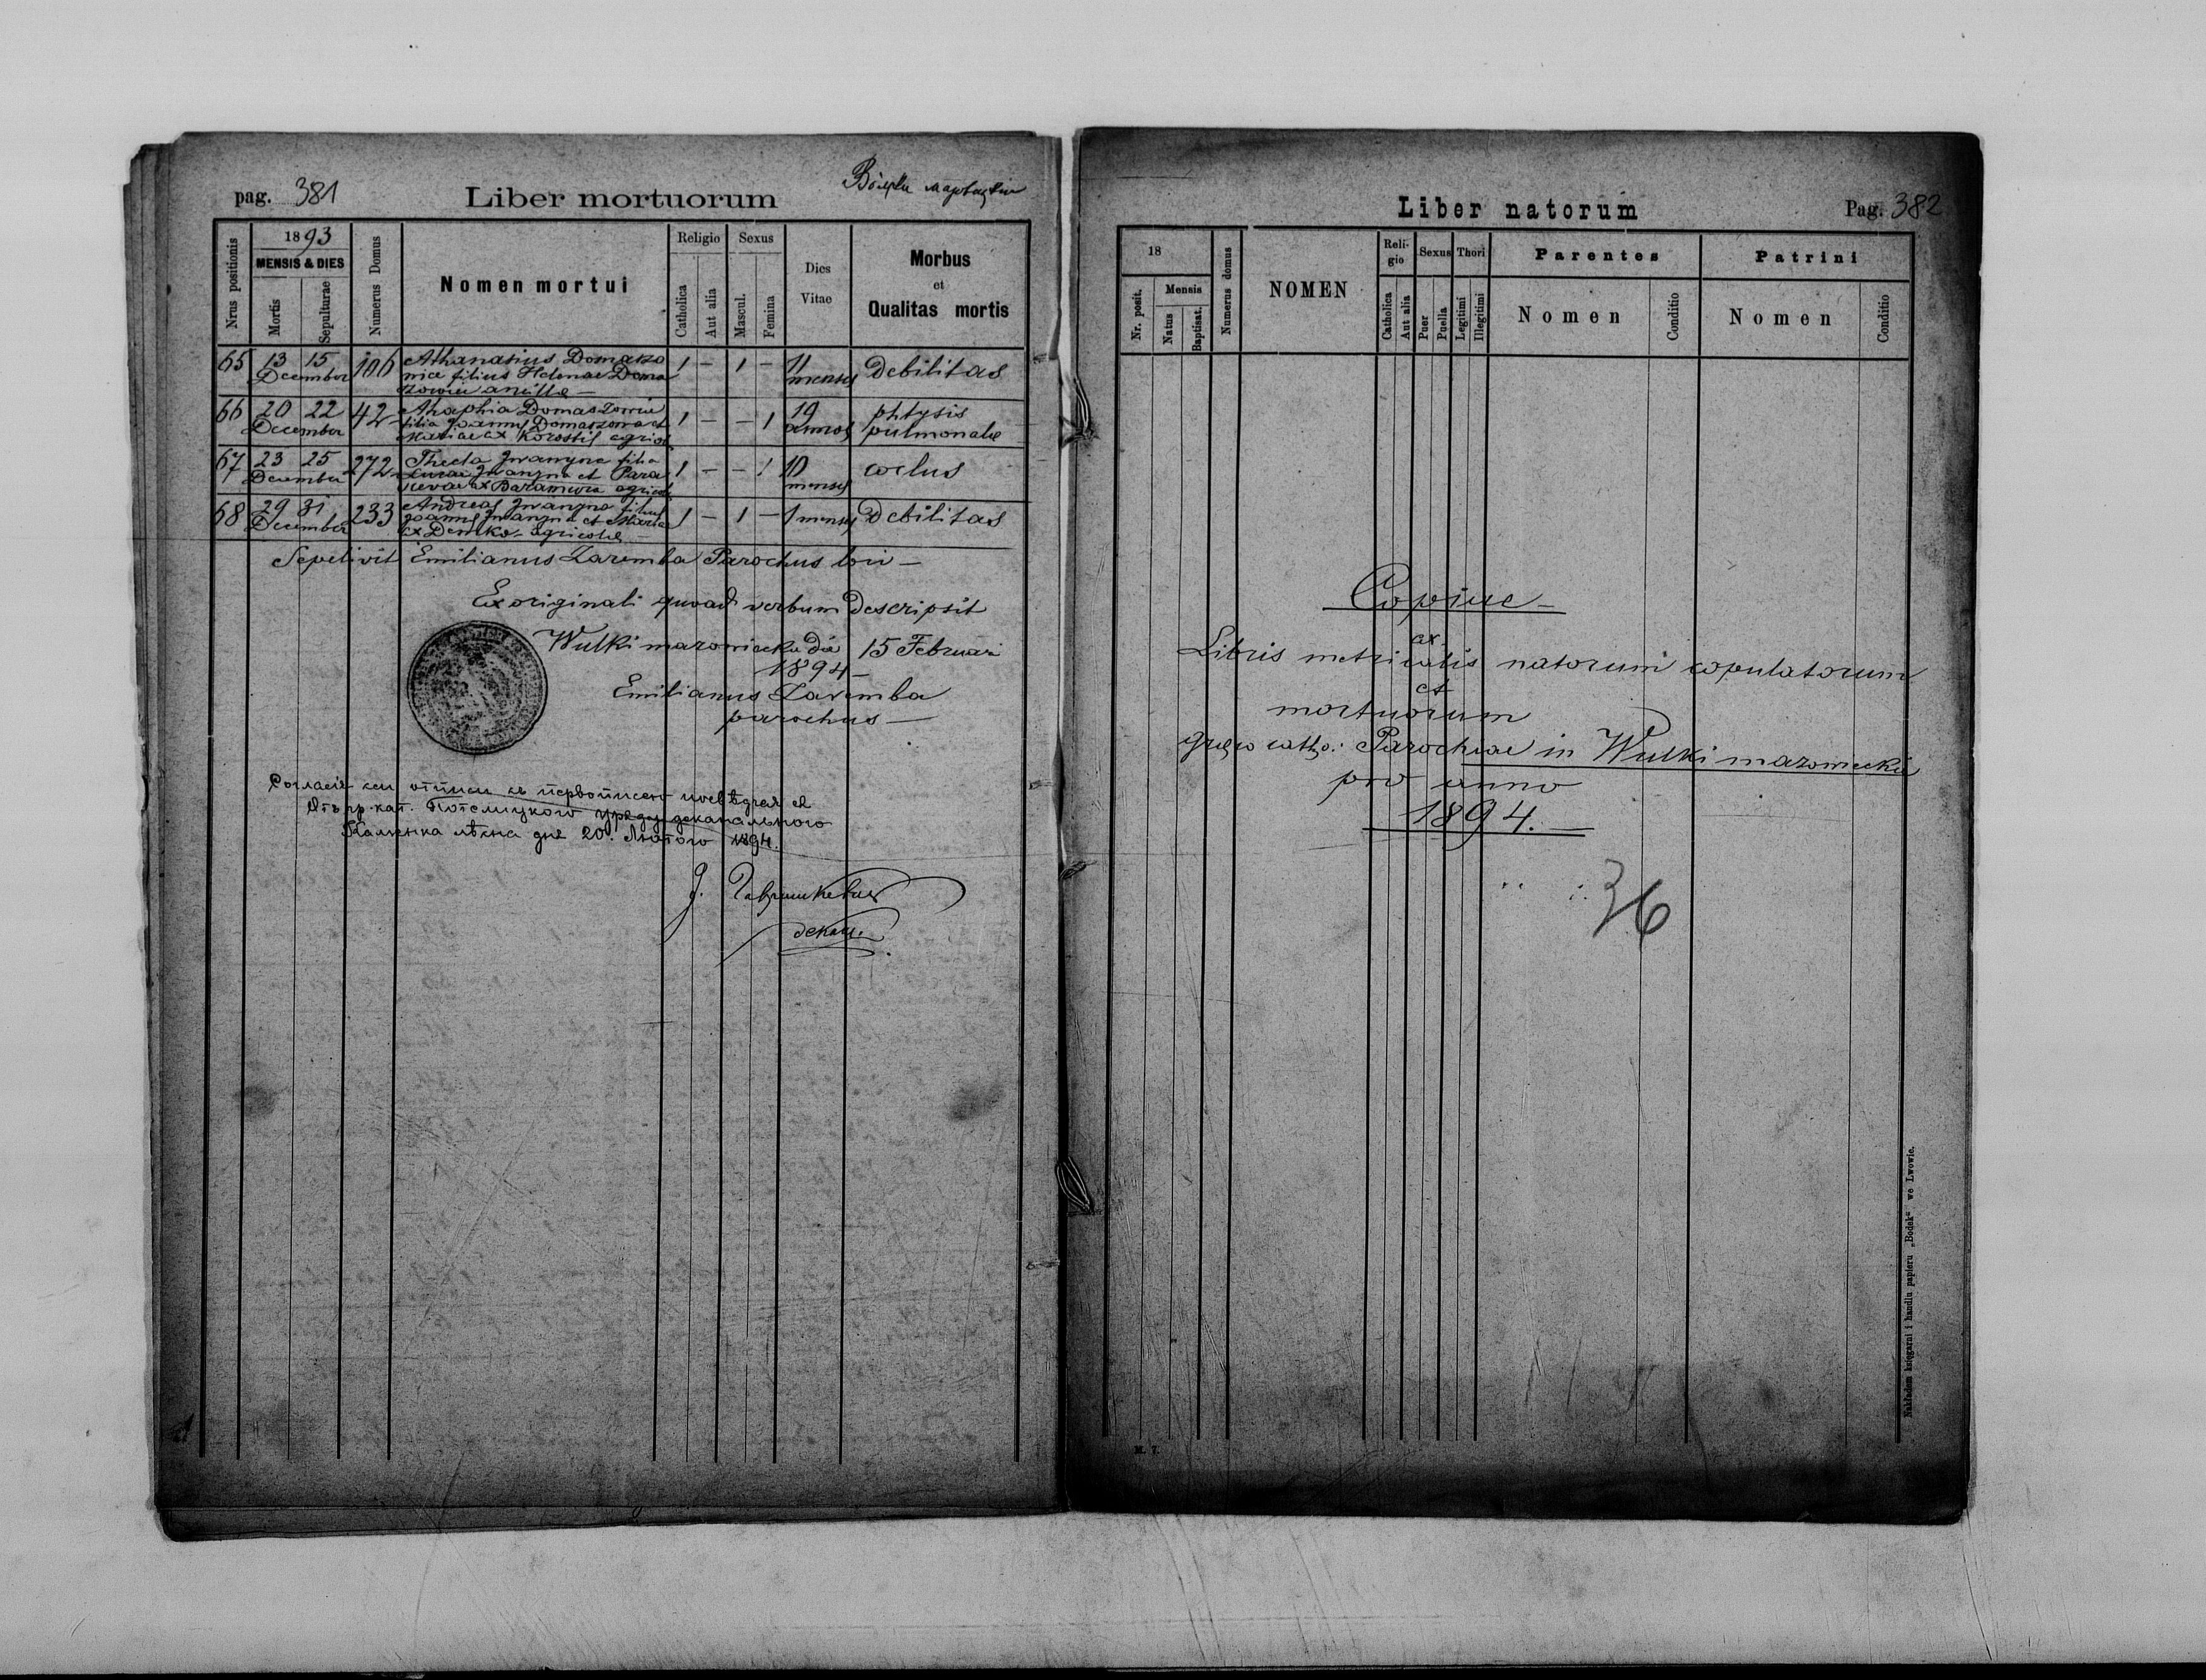 pag. 381
Liber mortuorum
Nrus positionis
1893
MENSIS & DIES
Mortis
Sepulturae
Numerus Domus
Nomen mortui
Religio
Catholica
Aut alia
Sexus
Mascul.
Femina
Dies Vitae
Morbus
et
Qualitas mortis
65 13 15 December 106 Athanasius Domaszo
wicz filius Helenae Doma
1 — 1 — 11 menses Debilitas
66 20 22 December 42 Domaszowicz
filia Joannis Domaszowicz et
Mariae ex Korostil agricol
1 — — 1 19 annos phtysis pulmonale
67 23 25 December 272 Thecla Iwanyna filia
Lucae Iwanyna et Para
scevae ex agricole
1 — — 1 10 menses
68 29 31 December 233 Andreas Iwanyna filius
Joannis Iwanyna et Maria
ex Demko agricolae
1 — 1 — 1 mensis Debilitas
Sepelivit Emilianus Zaremba Parochus loci —
Ex originali quoad verbum descripsit
Wulki mazowiecki die 15 Februarii
1894 —
Emilianus Zaremba
parochus —
отписи съ первописею
Отъ гр. кат. Потелицкого уряду деканального
дня 20. Лютого 1894.
декан.
Liber natorum
Pag. 382
18
Nr. posit.
Mensis
Natus
Baptisat.
Numerus domus
NOMEN
Reli-
gio
Catholica
Aut alia
Sexus
Puer
Puella
Thori
Legitimi
Illegitimi
Parentes
Nomen
Conditio
Patrini
Nomen
Conditio
Copiae —
ex
Libris metricalis natorum copulatorum
et
mortuorum
graeco cath: Parochiae in Wulki mazowiecki
pro anno
1894. —
36
M. 7.
Nakładem księgarni i handlu papieru „Bodek“ we Lwowie.